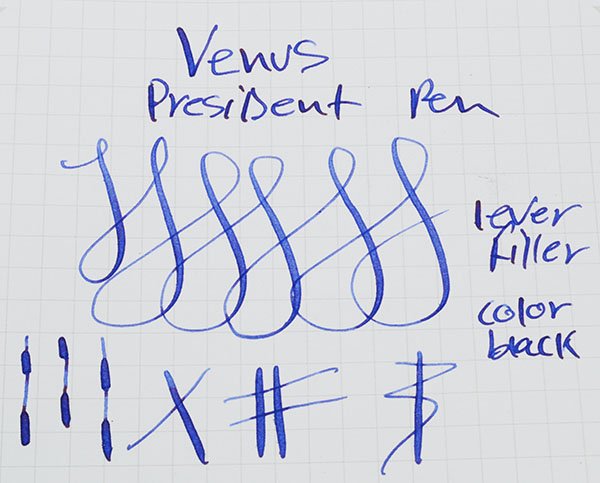 Venus
President Pen
lever
filler
color
black
X # $